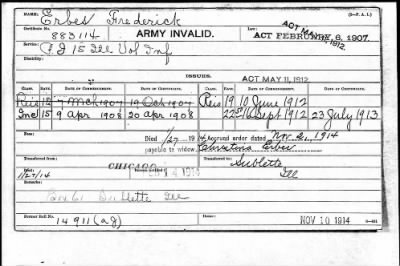 Name Erbes Frederick (3-P.A.I.)
Certificate No. 883114 ARMY INVALID. ACT FEBRUARY 6, 1907. ACT MAY 11, 1912.
Service C, I 15 Ill Vol Inf
Disability:
ISSUES. ACT MAY 11, 1912.
CLASS. RATE. DATE OF COMMENCEMENT. DATE OF CERTIFICATE. CLASS. RATE. DATE OF COMMENCEMENT. DATE OF CERTIFICATE.
Reis 12 7 Mch 1907 19 Oct 1907 Reis 19 10 June 1912
Inc 15 9 Apr 1908 20 Apr 1908 16 Sept 1912 23 July 1913
Died 1/27 1914 Accrued order dated 1914
payable to widow, Christina Erbes
Transferred from: CHICAGO Transferred to: Sublette
1/27/14 1914 Ill
Box 61 Sublette Ill
Former Roll No. 14911 NOV 10 1914